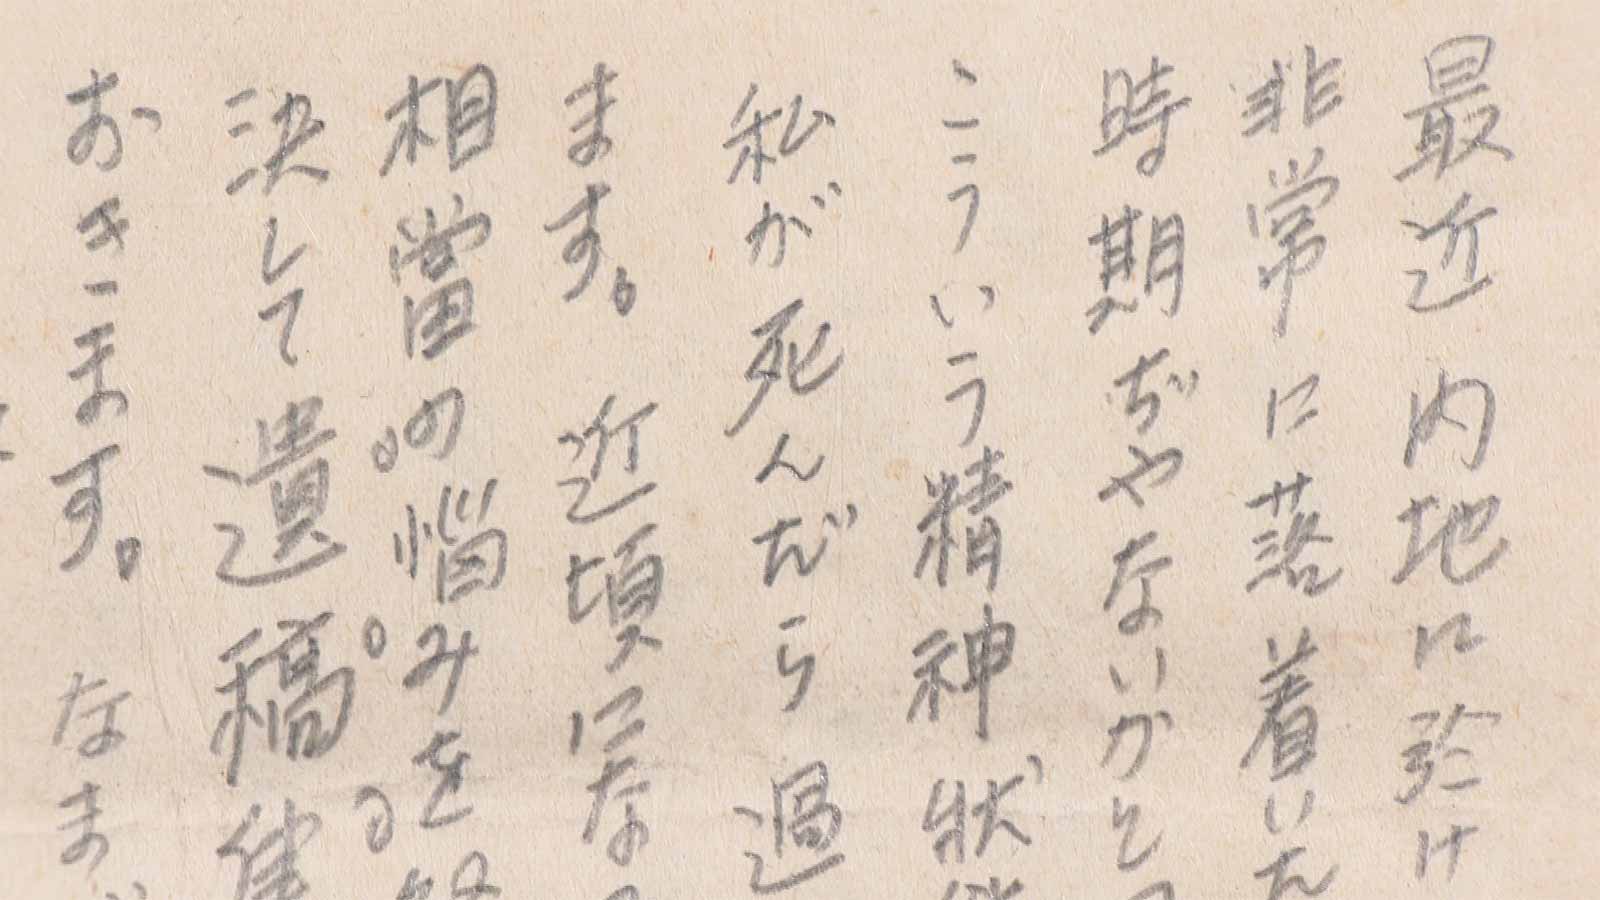 最近内地に於け
非常に落着いた
時期ぢやないかと
こういう精神状
私が死んだら過
ます。近頃にな
相當の悩みを
決して遺稿集
おきます。なま